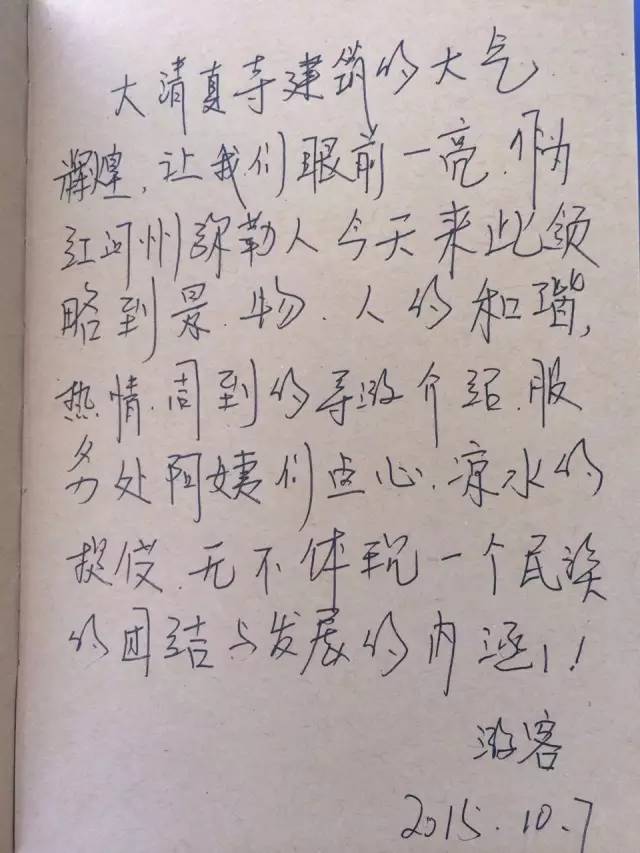 大清真寺建筑的大气
辉煌，让我们眼前一亮，作为
红河州弥勒人今天来此领
略到景、物、人的和谐，
热情、周到的导游介绍、服
务处阿姨们点心、凉水的
提供，无不体现一个民族
的团结与发展的内涵！！
游客
2015.10.7